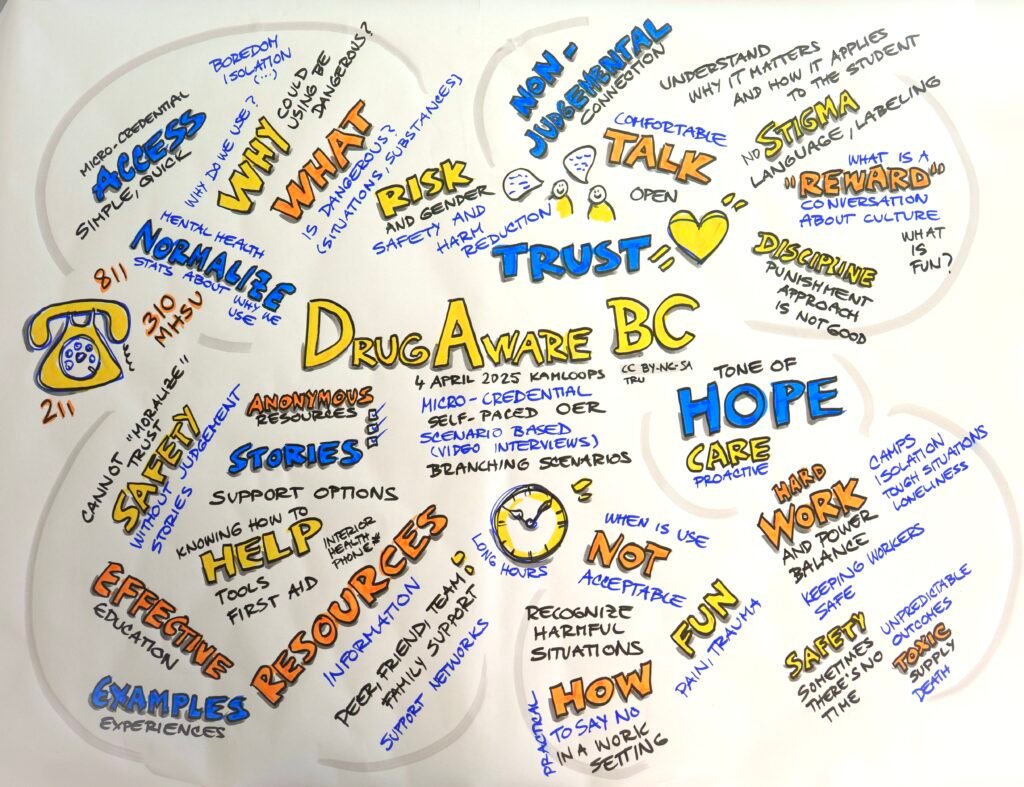 BOREDOM
ISOLATION
(...)
MICRO-CREDENTIAL
ACCESS
SIMPLE, QUICK
WHY DO WE USE?
WHY
COULD
USING BE
DANGEROUS?
WHAT
IS
DANGEROUS?
(SITUATIONS, SUBSTANCES)
MENTAL HEALTH
NORMALIZE
STATS ABOUT WHY WE
USE
RISK
AND GENDER
SAFETY AND
HARM
REDUCTION
NON-
JUDGEMENTAL
CONNECTION
COMFORTABLE
TALK
OPEN
TRUST
UNDERSTAND
WHY IT MATTERS
AND HOW IT APPLIES
TO THE STUDENT
NO STIGMA
LANGUAGE, LABELING
WHAT IS A
"REWARD"
CONVERSATION
ABOUT CULTURE
WHAT
IS
FUN?
DISCIPLINE
PUNISHMENT
APPROACH
IS NOT GOOD
811
310
MHSU
211
DRUGAWARE BC
CC BY-NC-SA
TRU
4 APRIL 2025 KAMLOOPS
MICRO-CREDENTIAL
SELF-PACED OER
SCENARIO BASED
(VIDEO INTERVIEWS)
BRANCHING SCENARIOS
TONE OF
HOPE
CARE
PROACTIVE
CANNOT "MORALIZE"
TRUST
SAFETY
WITHOUT JUDGEMENT
STORIES
ANONYMOUS
RESOURCES
STORIES
SUPPORT OPTIONS
KNOWING HOW TO
HELP
TOOLS
FIRST AID
INTERIOR
HEALTH
PHONE#
EFFECTIVE
EDUCATION
EXAMPLES
EXPERIENCES
RESOURCES
INFORMATION
PEER, FRIEND, TEAM
FAMILY SUPPORT
SUPPORT NETWORKS
LONG HOURS
WHEN IS USE
NOT
ACCEPTABLE
RECOGNIZE
HARMFUL
SITUATIONS
FUN
PAIN, TRAUMA
PRACTICAL
HOW
TO SAY NO
IN A WORK
SETTING
HARD
WORK
AND POWER
BALANCE
CAMPS
ISOLATION
TOUGH SITUATIONS
LONELINESS
KEEPING WORKERS
SAFE
SAFETY
SOMETIMES
THERE'S NO
TIME
UNPREDICTABLE
OUTCOMES
TOXIC
SUPPLY
DEATH